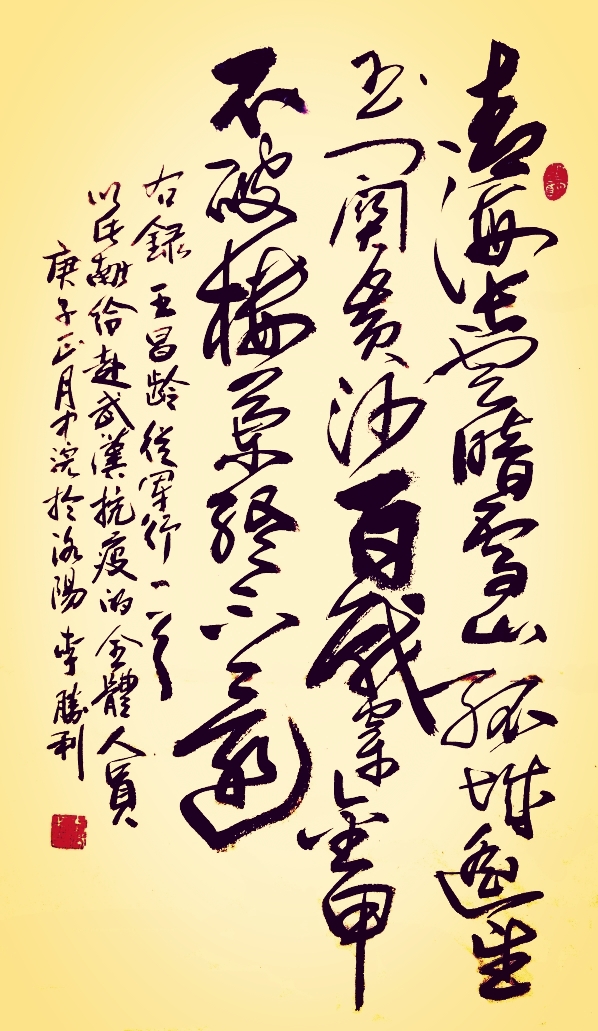 青海长雲暗雪山孤城遥望
玉门關黄沙百戰穿金甲
不破樓蘭终不還
右錄王昌龄從軍行一首
以此献给赴武漢抗疫的全體人員
庚子正月中浣於洛陽 李勝利